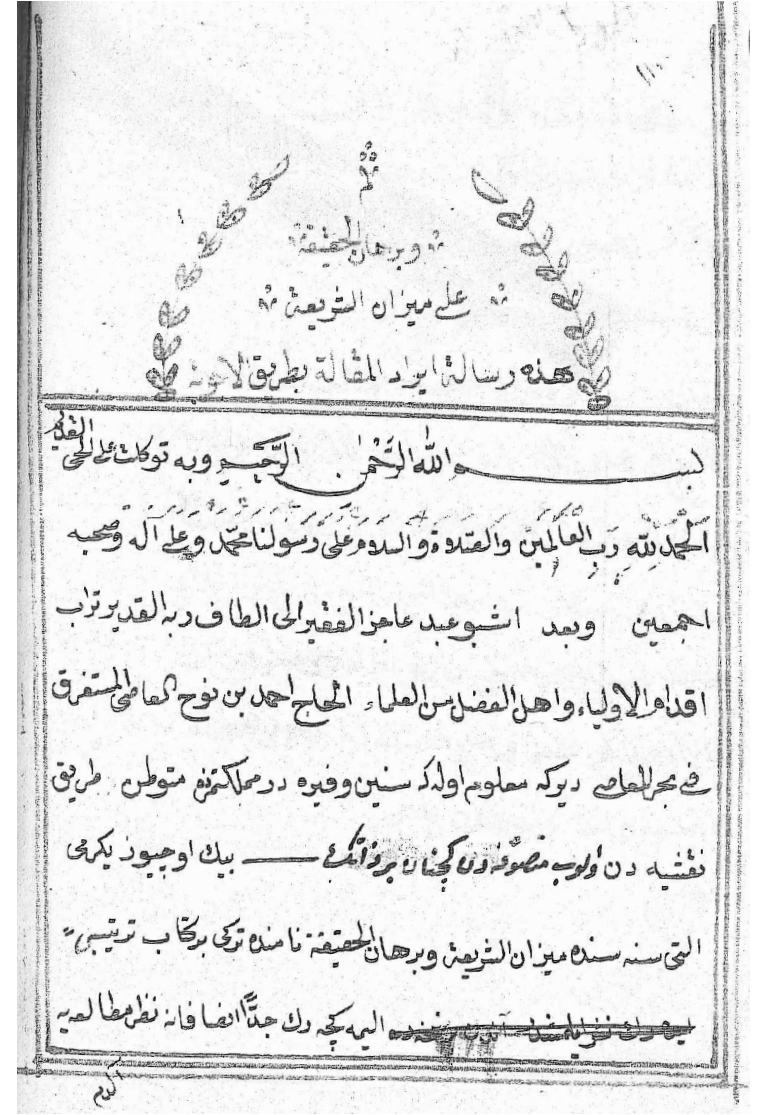 هذه رسالة ايراد المقالة بطريق الاجوبة
على ميزان الشريعة
وبرهان الحقيقة
تم
بسم الله الرَّحْمٰن الرَّحِيم وبه توكلت على الحى القديم
اَلْحَمْدُ لِلّٰهِ رَبِّ العَالمِينَ والصّلاة والسلام على رَسولنا محمّد وعلى آله وصحبه
اجمعين وبعد اشبو عبد عاجز الفقير الى الطاف ربه القدير تراب
اقدام الاولياء واهل الفضل من العلماء الحاج احمد بن نوح العاصى المستغرق
فى بحر المعاصى ديركه معلوم اوله كه سنين وفيره در مملكتمزه متوطن طريق
نقشيه دن اولوب متصوفه دن كچنان بيك اوچيوز يكرمى
التى سنه سنده ميزان الشريعة وبرهان الحقيقة نامنده تركى بر كتاب ترتيبى
اليمه كچه رك جدًّا انصافانه نظر مطالعه يه